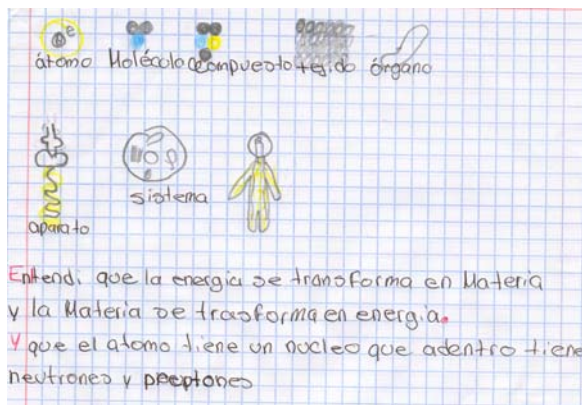 átomo Molécula compuesto tejido órgano
sistema
aparato
Entendi que la energia se transforma en Materia
y la Materia se trasforma en energia.
Y que el atomo tiene un nucleo que adentro tiene
neutrones y preptones